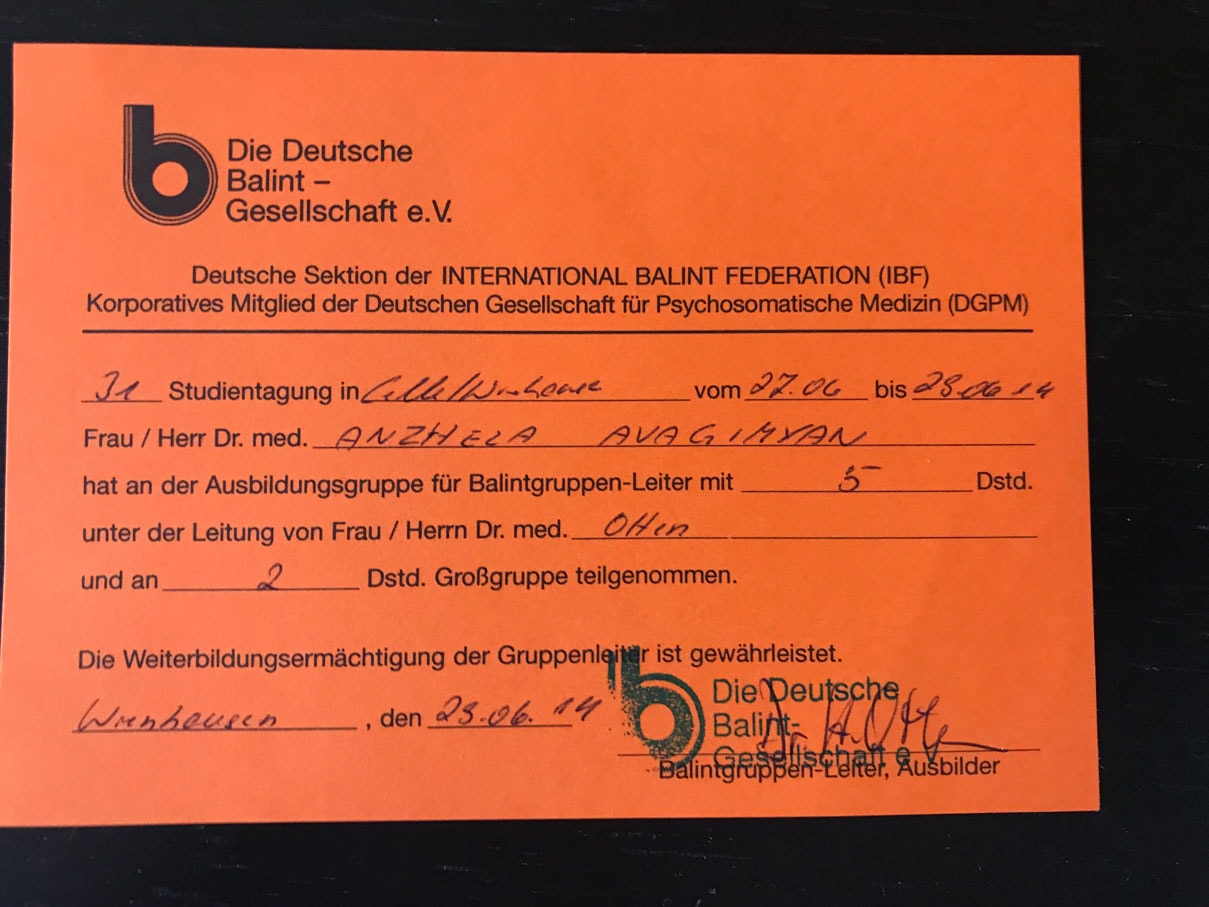 Die Deutsche
Balint –
Gesellschaft e.V.
Deutsche Sektion der INTERNATIONAL BALINT FEDERATION (IBF)
Korporatives Mitglied der Deutschen Gesellschaft für Psychosomatische Medizin (DGPM)
31 Studientagung in Celle/Wienhausen vom 27.06 bis 29.06 14
Frau / Herr Dr. med. ANZHELA AVAGIMYAN
hat an der Ausbildungsgruppe für Balintgruppen-Leiter mit 5 Dstd.
unter der Leitung von Frau / Herrn Dr. med. Otten
und an 2 Dstd. Großgruppe teilgenommen.
Die Weiterbildungsermächtigung der Gruppenleiter ist gewährleistet.
Wienhausen, den 29.06. 14
Die Deutsche
Balint-
Gesellschaft e.V.
Dr. H. Otten
Balintgruppen-Leiter, Ausbilder